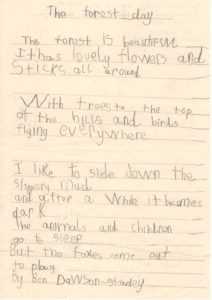 The forest day
The forest is beautiful
It has lovely flowers and
sticks all around
With trees to the top
of the hills and birds
flying everywhere
I like to slide down the
slippery mud
and after a while it becomes
dark
The animals and children
go to sleep
but the foxes come out
to play
By Ben Dawson-stanley